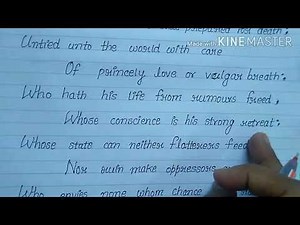 Made with
KINEMASTER
prepared not death:
Untied unto the world with care
Of princely love or vulgar breath:
Who hath his life from rumours freed,
Whose conscience is his strong retreat:
Whose state can neither flatterers feed
Nor ruin make oppressors
Who envies none whom chance